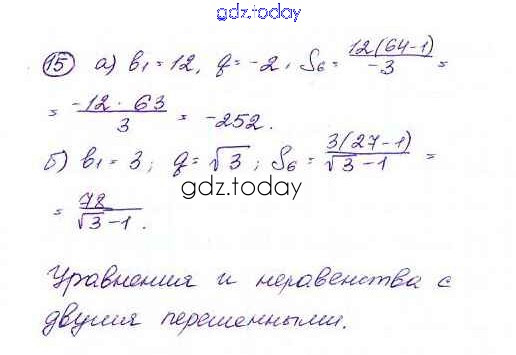 gdz.today
15 а) b₁ = 12, q = -2, S₆ = 12(64-1)/-3 =
= -12 · 63/3 = -252.
б) b₁ = 3; q = √3; S₆ = 3(27-1)/√3-1 =
gdz.today
= 78/√3-1.
Уравнения и неравенства с
двумя переменными.